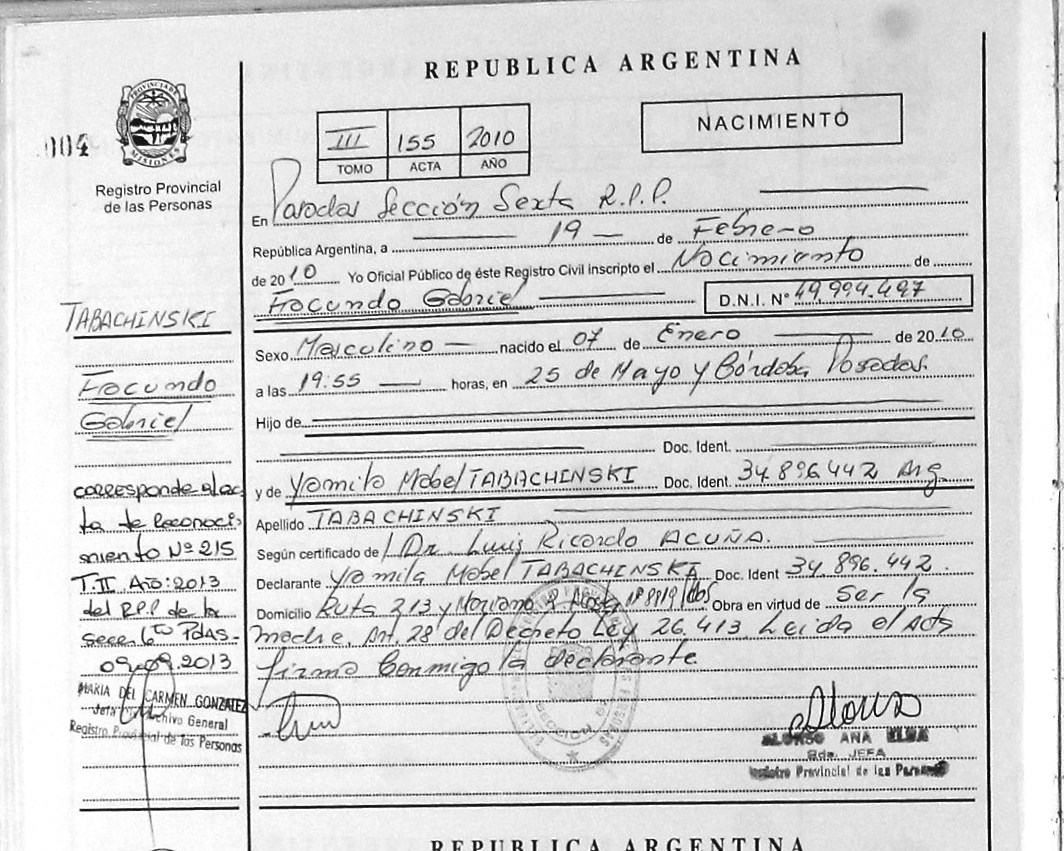 REPUBLICA ARGENTINA
PROVINCIA DE
MISIONES
004
Registro Provincial
de las Personas
III 155 2010
TOMO ACTA AÑO
NACIMIENTO
En Posadas Sección Sexta R.P.P.
República Argentina, a 19 de Febrero
de 2010 Yo Oficial Público de éste Registro Civil inscripto el Nacimiento de
Facundo Gabriel D.N.I. N° 49.994.497
Sexo Masculino nacido el 07 de Enero de 2010
a las 19:55 horas, en 25 de Mayo y Córdoba Posadas.
Hijo de
Doc. Ident.
y de Yamila Mabel TABACHINSKI Doc. Ident. 34.896.442 Arg.
Apellido TABACHINSKI
Según certificado de Dr. Luis Ricardo ACUÑA.
Declarante Yamila Mabel TABACHINSKI Doc. Ident 34.896.442.
Domicilio Ruta 213 y Mariano Obra en virtud de Ser la
madre, Art. 28 del Decreto Ley 26.413 Leida el Acta
firma conmigo la declarante
TABACHINSKI
Facundo
Gabriel
corresponde al ac
ta de Reconoci
miento Nº 215
T.II Año: 2013
del R.P.P de la
Secc 6ta Pdas-
09.09.2013
MARIA DEL CARMEN GONZALEZ
Jefa Archivo General
Registro Provincial de las Personas
Alonso
ALONSO ANA ELSA
Gda. JEFA
Registro Provincial de las Personas
REPUBLICA ARGENTINA